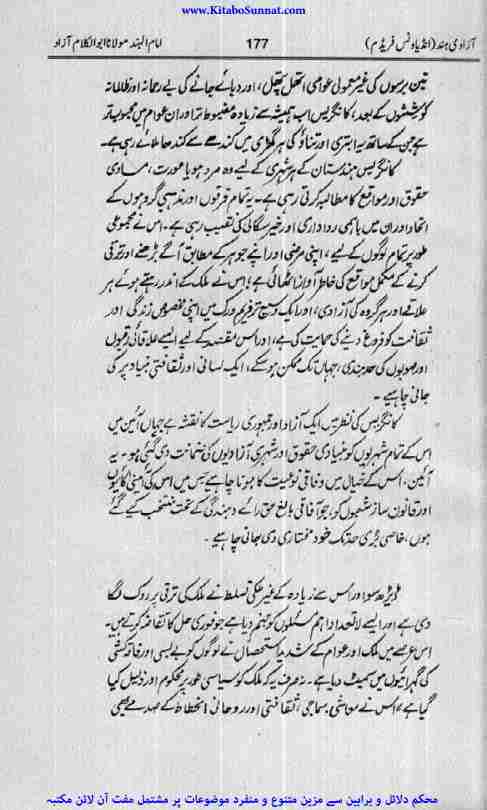 www.KitaboSunnat.com
آزادی ہند (انڈیا ونس فریڈم) 177 امام الہند مولانا ابوالکلام آزاد
تین برسوں کی غیر معمولی عوامی اتھل پتھل، اور دبائے جانے کی بے رحمانہ اور ظالمانہ
کوششوں کے بعد، کانگریس اب ہمیشہ سے زیادہ مضبوط تر اور ان عوام میں محبوب تر
ہے جن کے ساتھ یہ ابتری اور تناؤ کی ہر گھڑی میں کندھے سے کندھا ملائے رہی ہے۔
کانگریس ہندستان کے ہر شہری کے لیے وہ مرد ہو یا عورت، مساوی
حقوق اور مواقع کا مطالبہ کرتی رہی ہے۔ یہ تمام فرقوں اور مذہبی گروہوں کے
اتحاد اور ان میں باہمی رواداری اور خیر سگالی کی نقیب رہی ہے۔ اس نے مجموعی
طور پر تمام لوگوں کے لیے، اپنی مرضی اور اپنے جوہر کے مطابق آگے بڑھنے اور ترقی
کرنے کے مکمل مواقع کی خاطر آواز اٹھائی ہے؛ اس نے ملک کے اندر رہتے ہوئے ہر
علاقے اور ہر گروہ کی آزادی، اور ایک وسیع تر فریم ورک میں اپنی مخصوص زندگی اور
ثقافت کو فروغ دینے کی حمایت کی ہے، اور اس مقصد کے لیے ایسے علاقائی رقبوں
اور صوبوں کی حد بندی، جہاں تک ممکن ہو سکے، ایک لسانی اور ثقافتی بنیاد پر کی
جانی چاہیے۔
کانگریس کی نظر میں ایک آزاد اور جمہوری ریاست کا نقشہ ہے جہاں آئین میں
اس کے تمام شہریوں کو بنیادی حقوق اور شہری آزادیوں کی ضمانت دی گئی ہو۔ یہ
آئین، اس کے خیال میں وفاقی نوعیت کا ہونا چاہیے جس میں اس کی آئینی اکائیوں
اور قانون ساز شمولوں کو، جو آفاقی بالغ حق رائے دہندگی کے تحت منتخب کیے گئے
ہوں، خاصی بڑی حد تک خود مختاری دی جانی چاہیے۔
ڈیڑھ سو اور اس سے زیادہ کے غیر ملکی تسلط نے ملک کی ترقی پر روک لگا
دی ہے اور ایسے لاتعداد اہم مسئلوں کو جنم دیا ہے جو فوری حل کا تقاضہ کرتے ہیں۔
اس عرصے میں ملک اور عوام کے شدید استحصال نے لوگوں کو بے بسی اور فاقہ کشی
کی گہرائیوں میں سمیٹ دیا ہے۔ نہ صرف یہ کہ ملک کو سیاسی طور پر محکوم اور ذلیل کیا
گیا ہے، اس نے معاشی، سماجی، ثقافتی اور روحانی انحطاط کے صدمے بھی
محکم دلائل و براہین سے مزین متنوع و منفرد موضوعات پر مشتمل مفت آن لائن مکتبہ